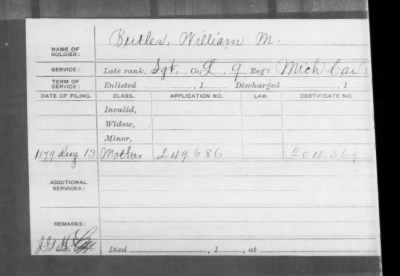 NAME OF SOLDIER: Butler, William M.
SERVICE: Late rank, Sgt. Co. L, 9 Reg't Mich Cav.
TERM OF SERVICE: Enlisted , 1 Discharged , 1
DATE OF FILING. CLASS. APPLICATION NO. LAW. CERTIFICATE NO.
Invalid,
Widow,
Minor,
1879 Aug. 13 Mother 249.686 204.569
ADDITIONAL SERVICES:
REMARKS:
Died , 1 , at